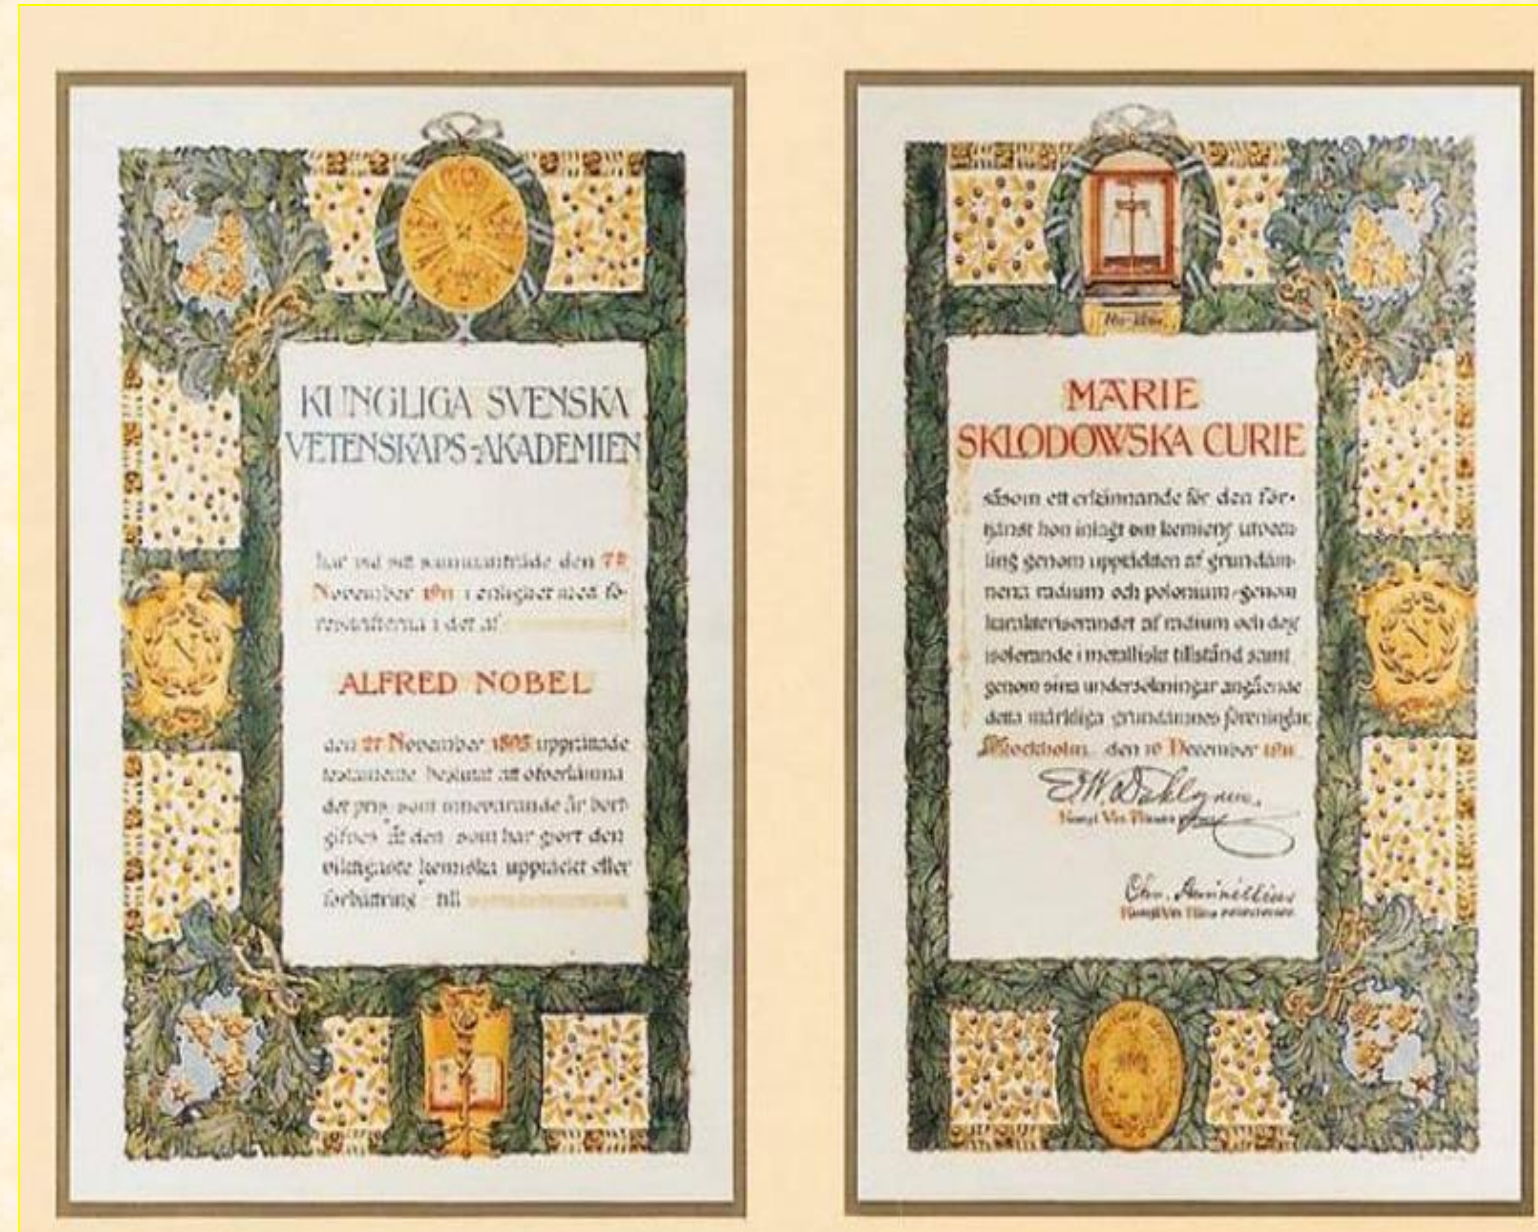 KUNGLIGA SVENSKA
VETENSKAPS-AKADEMIEN
har vid sitt sammanträde den
November 1911 i enlighet med fö-
reskrifterna i det af
ALFRED NOBEL
den 27 November 1895 upprättade
testamente beslutat att öfverlämna
det pris som innevarande år bort-
gifves åt den som har gjort den
viktigaste kemiska upptäckt eller
förbättring till
MARIE
SKLODOWSKA CURIE
såsom ett erkännande för den för-
tjänst hon inlagt om kemiens utveck-
ling genom upptäckten af grundäm-
nena radium och polonium genom
karakteriserandet af radium och dess
isolerande i metalliskt tillstånd samt
genom sina undersökningar angående
detta märkliga grundämnes föreningar.
Stockholm den 10 December 1911